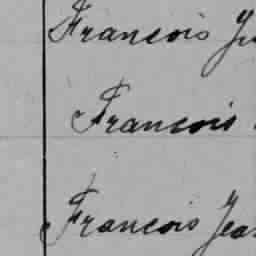 Francois
Francois
Francois Jea